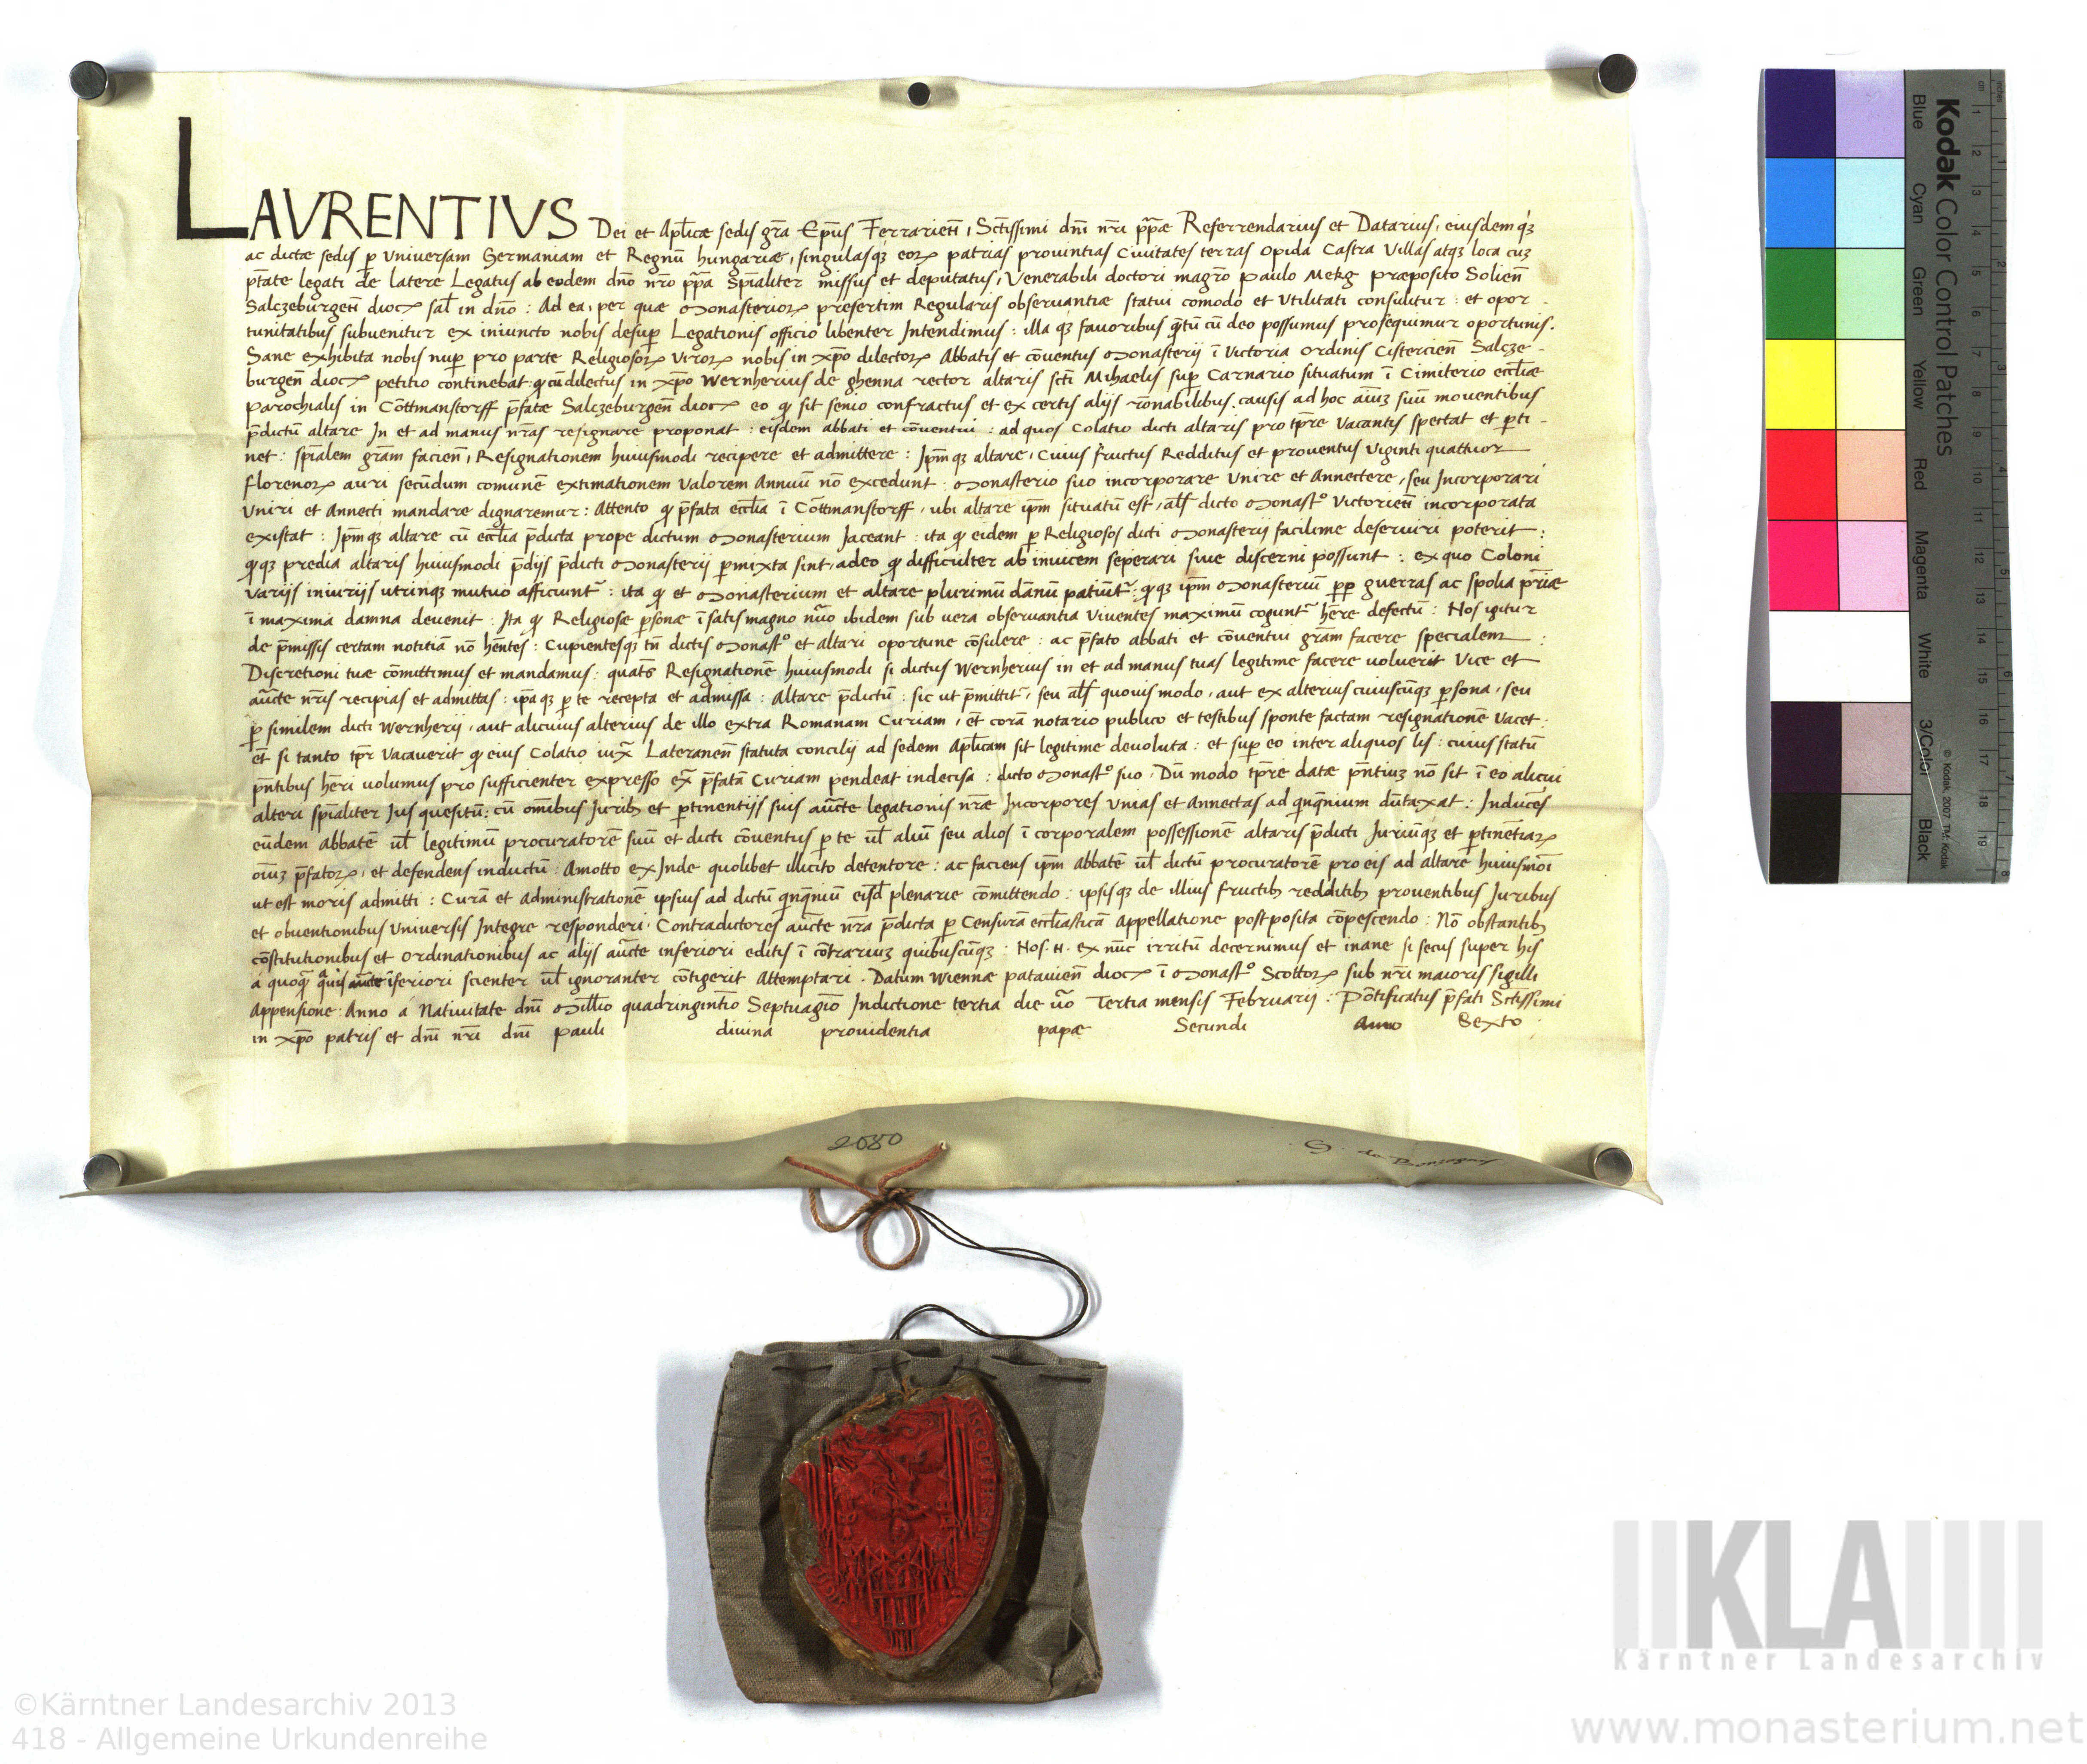 LAVRENTIVS Dei et Aplicæ sedis gr̄a Ep̄us Ferrarien̄, Sctissimi dn̄i nr̄i pp̄æ Referrendarius et Datarius, eiusdemqꝫ
ac dictæ sedis ꝑ Universam Germaniam et Regnū hungariæ, singulasqꝫ eoꝝ patrias provintias Civitates terras Opida Castra Villas atqꝫ loca cuꝫ
p̄tate legati de latere Legatus ab eodem dn̄o nr̄o pp̄a Sp̄ialiter missus et deputatus, Venerabili doctori magr̄o Paulo Mekg præposito Solien̄
Salczeburgen̄ dioc̄ sal̄ in dn̄o : Ad ea, per quæ Monasterioꝝ presertim Regularis observantiæ statui comodo et Utilitati consulitur : et opor-
tunitatibus subuenitur ex iniuncto nobis desuꝑ Legationis officio libenter Intendimus : illa qꝫ fauoribus q̄tū cū deo possumus prosequimur oportunis.
Sane exhibita nobis nuꝑ pro parte Religiosoꝝ Viroꝝ nobis in xp̄o dilectoꝝ Abbatis et cōventus Monasterij ī Victoria Ordinis Cistercien̄ Salcze-
burgen̄ dioc̄ petitio continebat : ꝙ cū dilectus in xp̄o Wernherius de ghenna rector altaris sct̄i Mihaelis suꝑ Carnario situatum ī Cimiterio eccl̄iæ
parochialis in Cōttmanstorff p̄fatæ Salczeburgen̄ dioc̄ eo ꝙ sit senio confractus et ex certis alijs rōnabilibus causis ad hoc aīuꝫ suū moventibus
p̄dictū altare In et ad manus nr̄as resignare proponat : eisdem abbati et cōventui : ad quos Colatio dicti altaris pro tp̄re Vacantis spectat et ꝑti-
net : sp̄ialem gr̄am facien̄, Resignationem huiusmodi recipere et admittere : Ip̄mqꝫ altare, Cuius fructus Redditus et proventus Viginti quattuor
florenoꝝ auri secūdum comunē extimationem Valorem Annuū nō excedunt : Monasterio suo incorporare Unire et Annectere, seu Incorporari
Uniri et Annecti mandare dignaremur : Attento ꝙ p̄fata eccl̄ia ī Cōttmanstorff, ubi altare ip̄m situatū est, al̄s dicto Monast̊ Victorien̄ incorporata
existat : Ip̄mqꝫ altare cū eccl̄ia p̄dicta prope dictum Monasterium Jaceant : ita ꝙ eidem ꝑ Religiosos dicti Monasterij facilime deserviri poterit :
ꝙqꝫ predia altaris huiusmodi p̄dijs p̄dicti Monasterij ꝑmixta sint, adeo ꝙ difficulter ab invicem seperari sive discerni possunt : ex quo Coloni
Varijs iniurijs utrinqꝫ mutuo afficiunt̄ : ita ꝙ et Monasterium et altare plurimū dānū patiūt̄ : ꝙqꝫ ip̄m Monasteriū ꝑꝑ guerras ac spolia pr̄iæ
ī maxima damna devenit : Ita ꝙ Religiosæ ꝑsonæ ī satis magno nu̅o ibidem sub vera observantia Viventes maximū cogunt̄ hēre defectū : Nos igitur
de p̄missis certam notitiā nō hēntes : Cupientesqꝫ tn̄ dictis Monast̊ et altari oportune cōsulere : ac p̄fato abbati et cōventui gr̄am facere specialem :
Discretioni tuæ cōmittimus et mandamus : quat̄s Resignationē huiusmodi si dictus Wernherius in et ad manus tuas legitime facere voluerit Vice et
auc̄te nr̄is recipias et admittas : ip̄aqꝫ ꝑ te recepta et admissa : Altare p̄dictū : sic ut p̄mittit̄, seu al̄s quovis modo, aut ex alterius cuiuscūqꝫ ꝑsona, seu
ꝑ similem dicti Wernherij, aut alicuius alterius de illo extra Romanam Curiam, et̄ corā notario publico et testibus sponte factam resignationē Vacet :
et̄ si tanto tp̄r Vacaverit ꝙ eius Colatio iux̄ Lateranen̄ statuta concilij ad sedem Apl̄icam sit legitime devoluta : et suꝑ eo inter aliquos lis : cuius statū
p̄ntibus hēri volumus pro sufficienter expresso ex̄ p̄fatā Curiam pendeat indecisa : dicto Monast̊ suo, Dū modo tp̄re datæ p̄ntiuꝫ nō sit ī eo alicui
alteri sp̄ialiter Jus quesitū : cū om̄ibus Juribꝫ et ꝑtinentijs suis auc̄te legationis nr̄æ Incorpores Unias et Annectas ad q̄nq̄nium dūtaxat : Inducēs
eūdem Abbatē ul̄ legitimū procuratorē suū et dicti cōventus ꝑ te ul̄ aliū seu alios ī corporalem possessionē altaris p̄dicti Juriūqꝫ et ꝑtinētiaꝝ
oīuꝫ p̄fatoꝝ, et defendens inductū : Amotto ex Inde quolibet illicito detentore : ac faciens ip̄m Abbatē ul̄ dictū procuratorē pro eis ad altare huiusmōi
ut est moris admitti : Curā et administrationē ipsius ad dictū q̄nq̄niū eisd̄ plenarie cōmittendo : ipsisqꝫ de illius fructibꝫ redditibꝫ proventibus Juribus
et obventionibus Universis Integre responderi, Contradictores auc̄te nr̄a p̄dicta ꝑ Censurā eccl̄iasticā Appellatione postposita cōpescendo : Nō obstantibꝫ
cōstitutionibus et ordinationibus ac alijs auc̄te inferiori editis ī cōtrariuꝫ quibuscūqꝫ : Nos. N. ex nūc irritū decernimus et inane si secus super his
á quoq̄ quis auc̄te īferiori scienter ul̄ ignoranter cōtigerit Attemptari. Datum Wiennæ patavien̄ dioc̄ ī Monast̊ Scottoꝝ sub nr̄i maioris sigilli
Appensione : Anno á Nativitate dn̄i Mill̄io quadringint̄io Septuag̅io Indictione tertia die v̅o Tertia mensis Februarij : Pōtificatus p̄fati Sctissimi
in xp̄o patris et dn̄i nr̄i dn̄i Pauli divina providentia papæ Secundi Anno Sexto
2680
Kodak Color Control Patches
Blue Cyan Green Yellow Red Magenta White 3/Color Black
© Kodak, 2007 TM: Kodak
KLA
Kärntner Landesarchiv
©Kärntner Landesarchiv 2013
418 - Allgemeine Urkundenreihe
www.monasterium.net